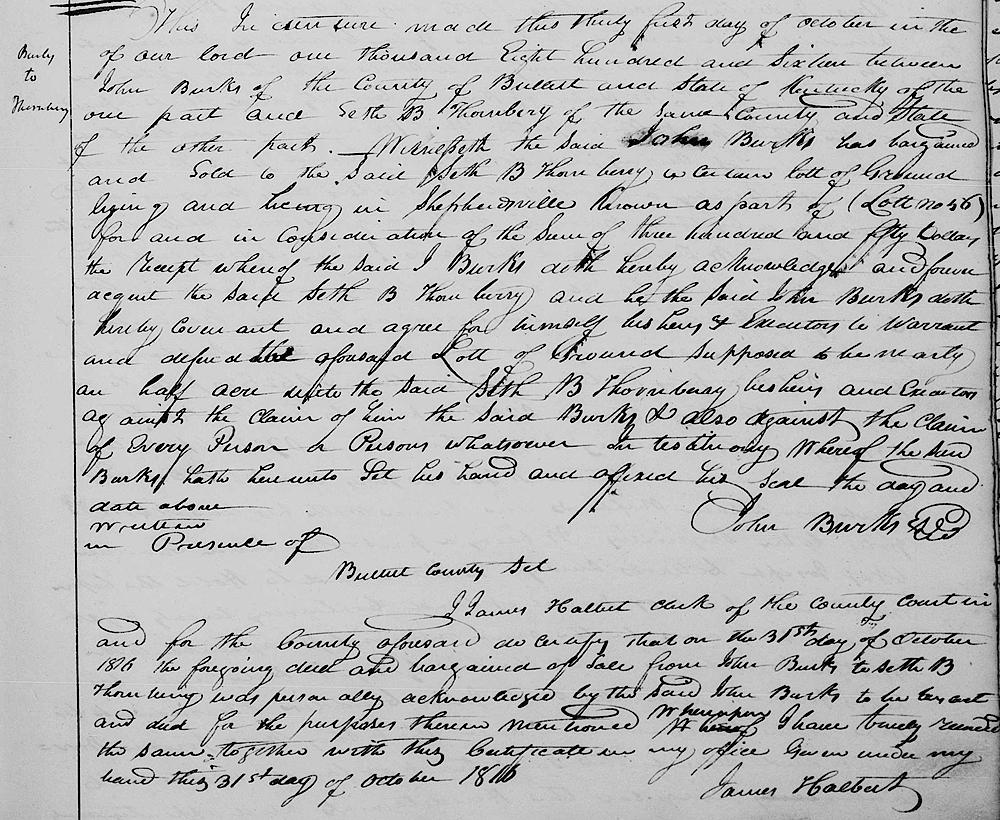 This Indenture made this thirty first day of October in the
of our lord one thousand Eight hundred and Sixteen between
Burks
to
Thornberry
John Burks of the County of Bullitt and State of Kentucky of the
one part and Seth B Thornbery of the Same County and State
of the other part. Witnesseth the Said John Burks has bargained
and Sold to the Said Seth B Thornberry a Certain lott of Ground
lying and being in Shepherdsville Known as part of (Lott no 56)
for and in Consideration of the Sum of three hundred and fifty Dollars
the Receipt whereof the Said J Burks doth hereby acknowledge and forever
acquit the Said Seth B Thornberry and he the Said John Burks doth
hereby Covenant and agree for himself his heirs & Executors to Warrant
and defend the afousaid Lott of Ground Supposed to be nearly
an half acre unto the Said Seth B Thornberry his heirs and Executors
against the Claim of him the Said Burks & also against the Claim
of Every Person or Persons whatsoever In testimony Whereof the Said
Burks hath hereunto Set his hand and affixed his Seal the day and
date above
Written
in Presence of
John Burks
Bullitt County Sct
I James Halbert clerk of the County Court in
and for the County afousaid do certify that on the 31st day of October
1816 the foregoing deed and bargained of Sale from John Burks to Seth B
Thornberry was personally acknowledged by the Said John Burks to be his act
and deed for the purposes therein mentioned Whereupon I have truly recorded
the same together with this Certificate in my office Given under my
hand this 31st day of October 1816
James Halbert